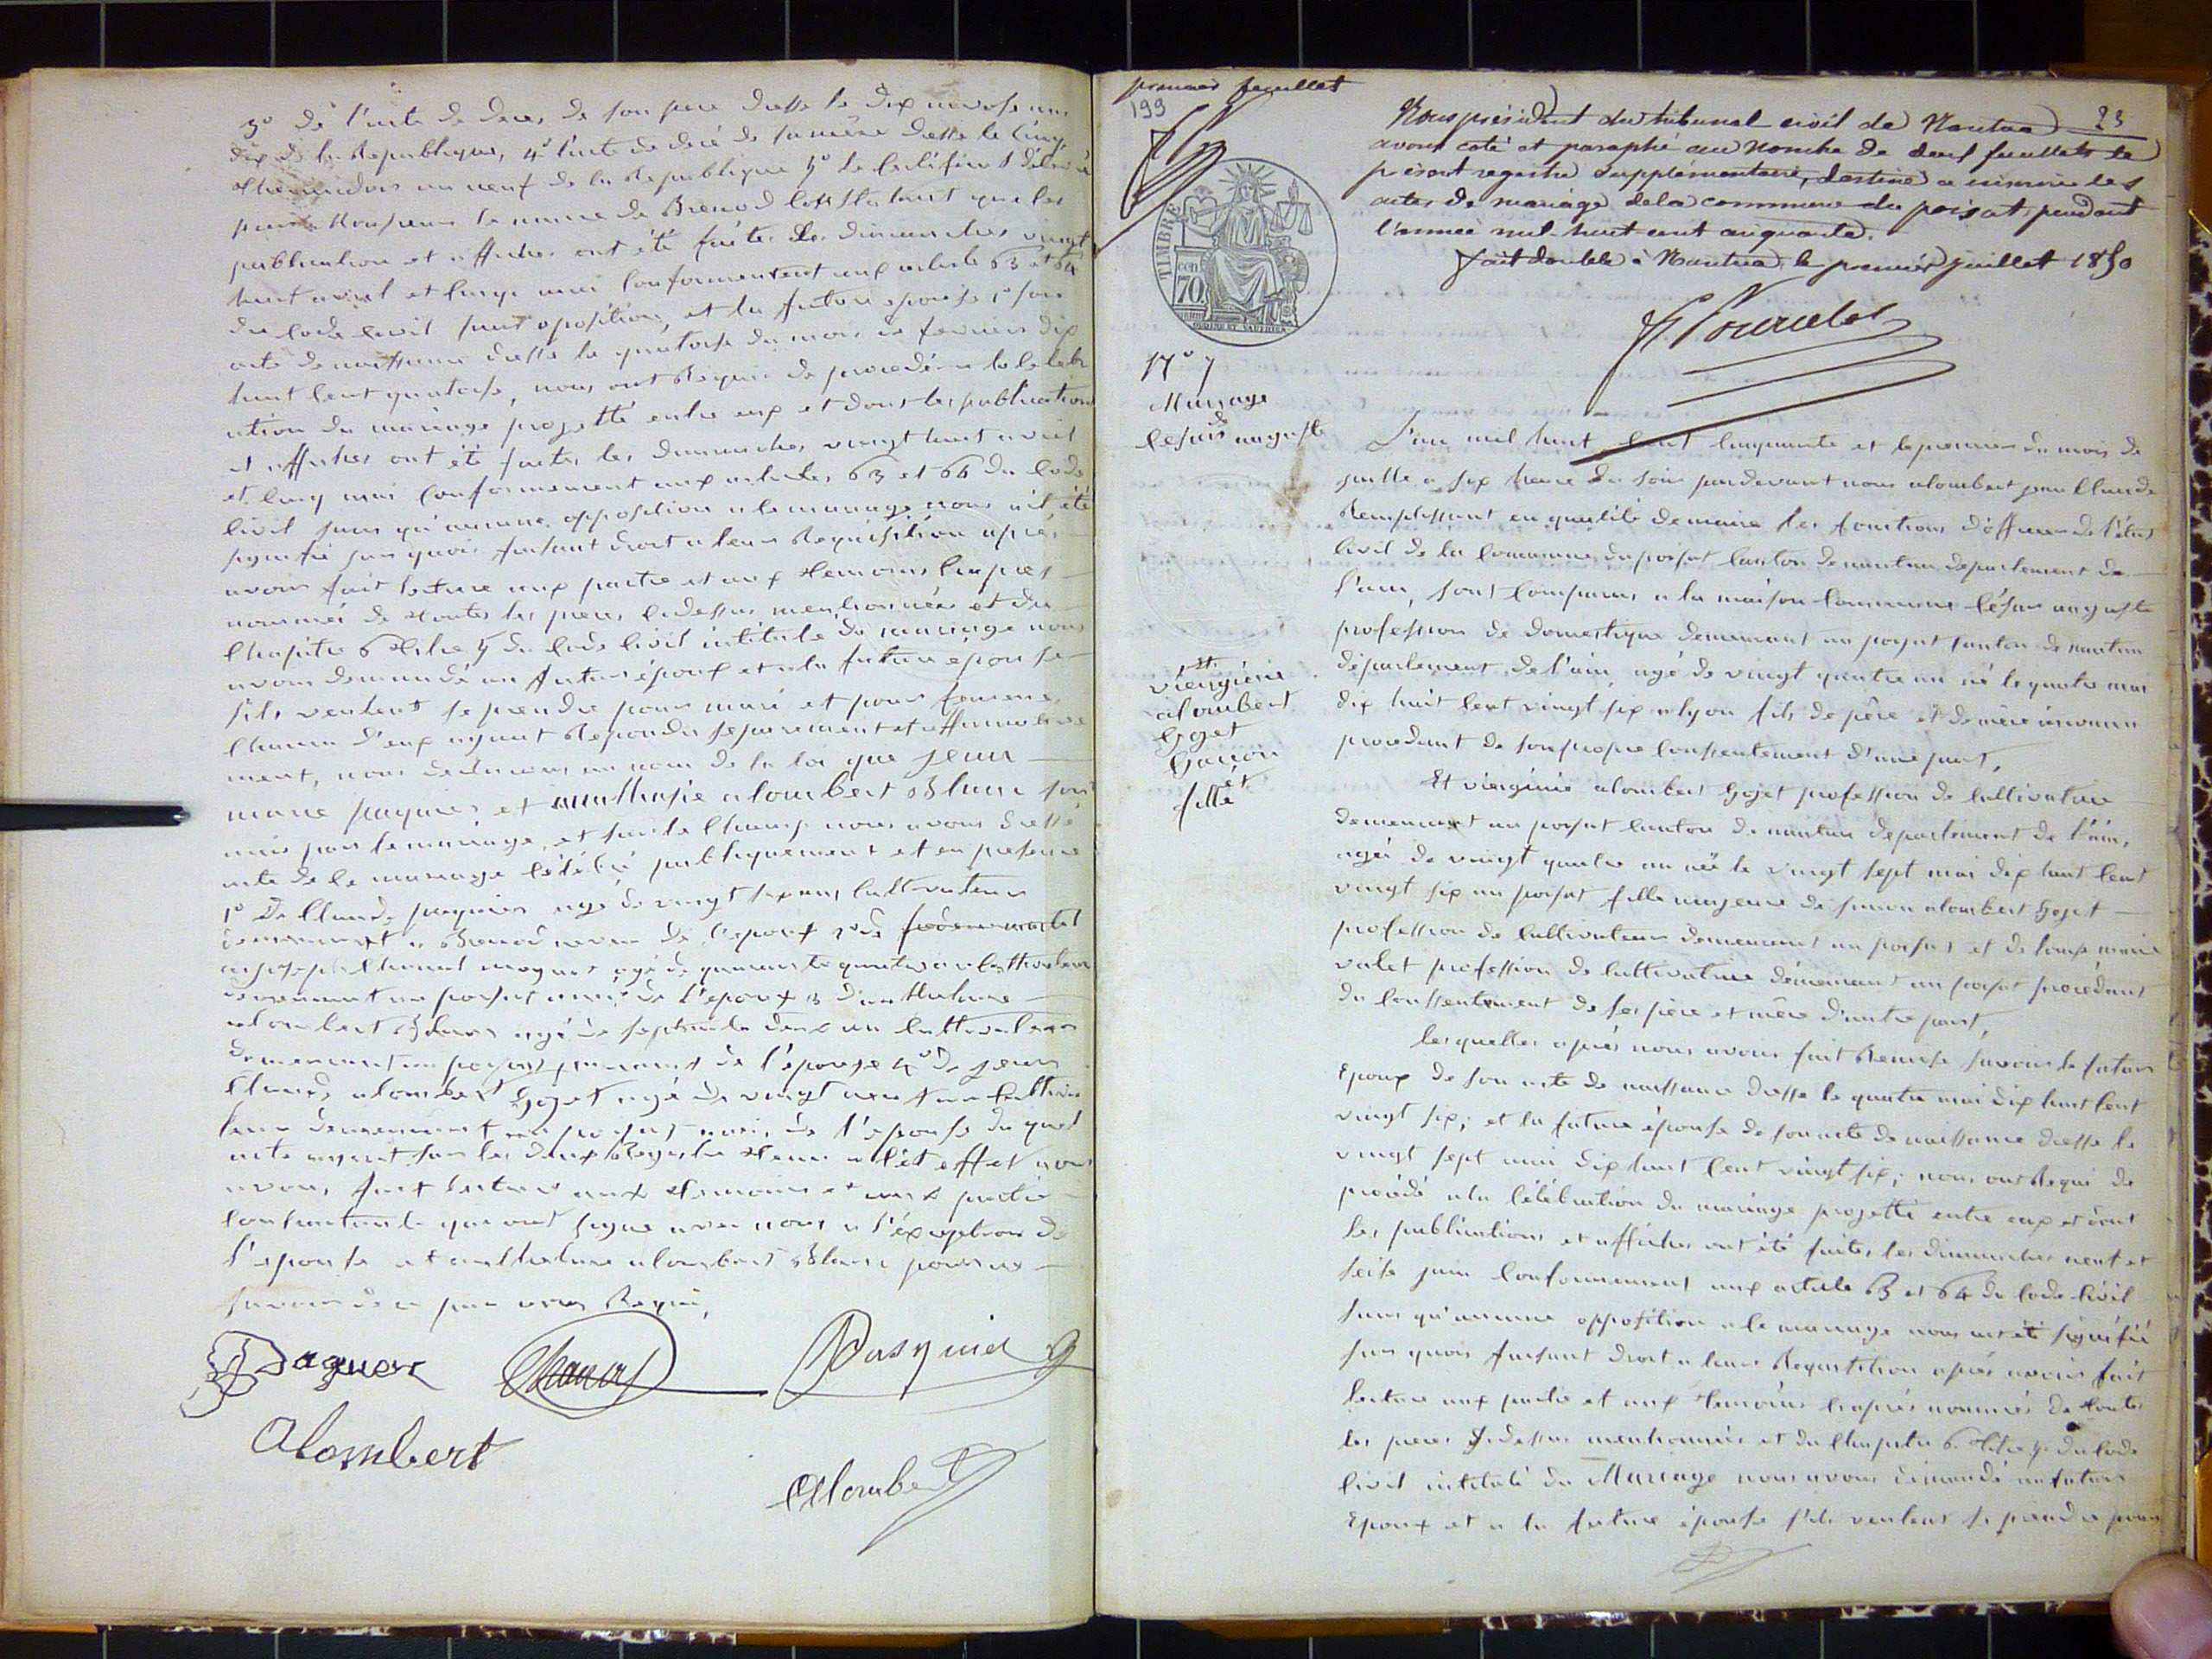 3° de l'acte de deces de son pere dresse le dix nivose an
dix de la Republique, 4° l'acte de décé de sa mère dresse le cinq
thermidor an neuf de la Republique 5° le certificat délivré
par Monsieur le maire de Brenod constatant que les
publication et affiches ont été faites les dimanches vingt
huit avril et cinq mai conformement aux article 63 et 64
du code civil sans oposition, et la future epouse 1° son
acte de naissance dresse le quatorse du mois de fevrier dix
huit cent quatorse, nous ont Requis de procedér a la celebr
ation du mariage projetté entre eux et dont les publications
et affiches ont été faites les dimanches vingt huit avril
et cinq mai conformement aux articles 63 et 64 du code
civil sans qu'aucune opposition a le mariage nous ait été
signifié sur quois faisant droit a leur Requisition aprés
avoir fait lecture aux partie et aux temoins ciaprés
nommés de toutes les pieces cidessus mentionnées et du
chapitre 6 titre 5 du code civil intitulé du mariage nous
avons demandé au futur époux et a la future epouse
s'ils veulent se prendre pour mari et pour femme,
chacun d'eux ayant Repondu separement et affirmative
ment, nous declarons au nom de la loi que jean
marie paquier et anathasie alombert Blanc sont
unis par le mariage, et sur le champ nous avons dressé
acte de le mariage célébré publiquement et en presence
1° de Claude paquier agé de vingt six ans cultivateur
demeurant a Brenod neveu de l'epoux 2° de
joseph chanel agé de quarante quatre an cultivateur
demeurant au poisat ami de l'epoux 3 d'anthelme
alombert Blanc agé de septante deux an cultivateur
demeurant au poisat parent de l'épouse 4° de jean
Claude alombert Goget agé de vingt neuf an cultiva
teur demeurant au poisat ami de l'epouse du quel
acte ayant sur les deux Registre tenu a cet effet nous
avons fait lecture aux temoins et aux partie
contractante qui ont signé avec nous a l'éxception de
l'epouse et anthelme alombert Blanc pour ne
savoir de ce par nous Requis,
Paquier Chanel Pasquier
Alombert
Alombert
premier feuillet
199
23
Nous président du tribunal civil de Nantua
avons coté et paraphé au nombre de deux feuillets le
présent registre supplémentaire, destiné a inscrire les
actes de mariage de la commune du poisat, pendant
l'année mil huit cent cinquante.
fait double à Nantua, le premier juillet 1850
TIMBRE
70
N° 7
Mariage
de
Cesar auguste
et
viergine
alombert
Goget
Garcon
et
fille
L'an mil huit cent cinquante et le premier du mois de
juillet a six heure du soir pardevant nous alombert jean Claude
Remplissant en qualité de maire les fonctions d'officier de l'état
civil de la Commune du poisat canton de nantua departement de
l'ain, sont comparus a la maison commune César auguste
profession de domestique demeurant au poisat canton de nantua
département de l'ain, agé de vingt quatre an né le quatre mai
dix huit cent vingt six a lyon fils de père et de mère inconnu
procedant de son propre consentement d'une part,
Et viergine alombert Goget profession de cultivatrice
demeurant au poisat canton de nantua département de l'ain,
agée de vingt quatre an née le vingt sept mai dix huit cent
vingt six au poisat fille majeure de simon alombert Goget
profession de cultivateur demeurant au poisat et de marie
valet profession de cultivatrice demeurant au poisat procédant
du consentement de ses père et mère d'autre part,
lesquelles aprés nous avoir fait Remise savoir le futur
Epoux de son acte de naissance dresse le quatre mai dix huit cent
vingt six; et la future épouse de son acte de naissance dresse le
vingt sept mai dix huit cent vingt six; nous ont Requi de
procédé a la célébration du mariage projetté entre eux et dont
les publications et affiches ont été faites les dimanches neuf et
seise juin conformement aux article 63 et 64 du code civil
sans qu'aucune opposition a le mariage nous ait été signifié
sur quois faisant droit a leur Requisition aprés avoir fait
lecture aux partie et aux temoins ciaprés nommés de toutes
les pieces cidessus mentionnées et du chapitre 6 titre 5 du code
civil intitulé du Mariage nous avons demandé au futur
Epoux et a la future épouse s'ils veulent se prendre pour